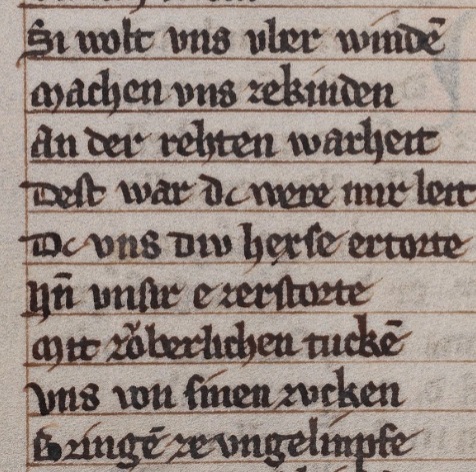 Si wolt vns vber windē
Machen vns zekinden
An der rehten warheit
Dest war dc were mir leit
Dc vns diw hexse ertorte
Vn̄ vnsir e zerstorte
Mit zoͮberlichen tuckē
Vns von sinen rvcken
Bringē ze vngelinpfe